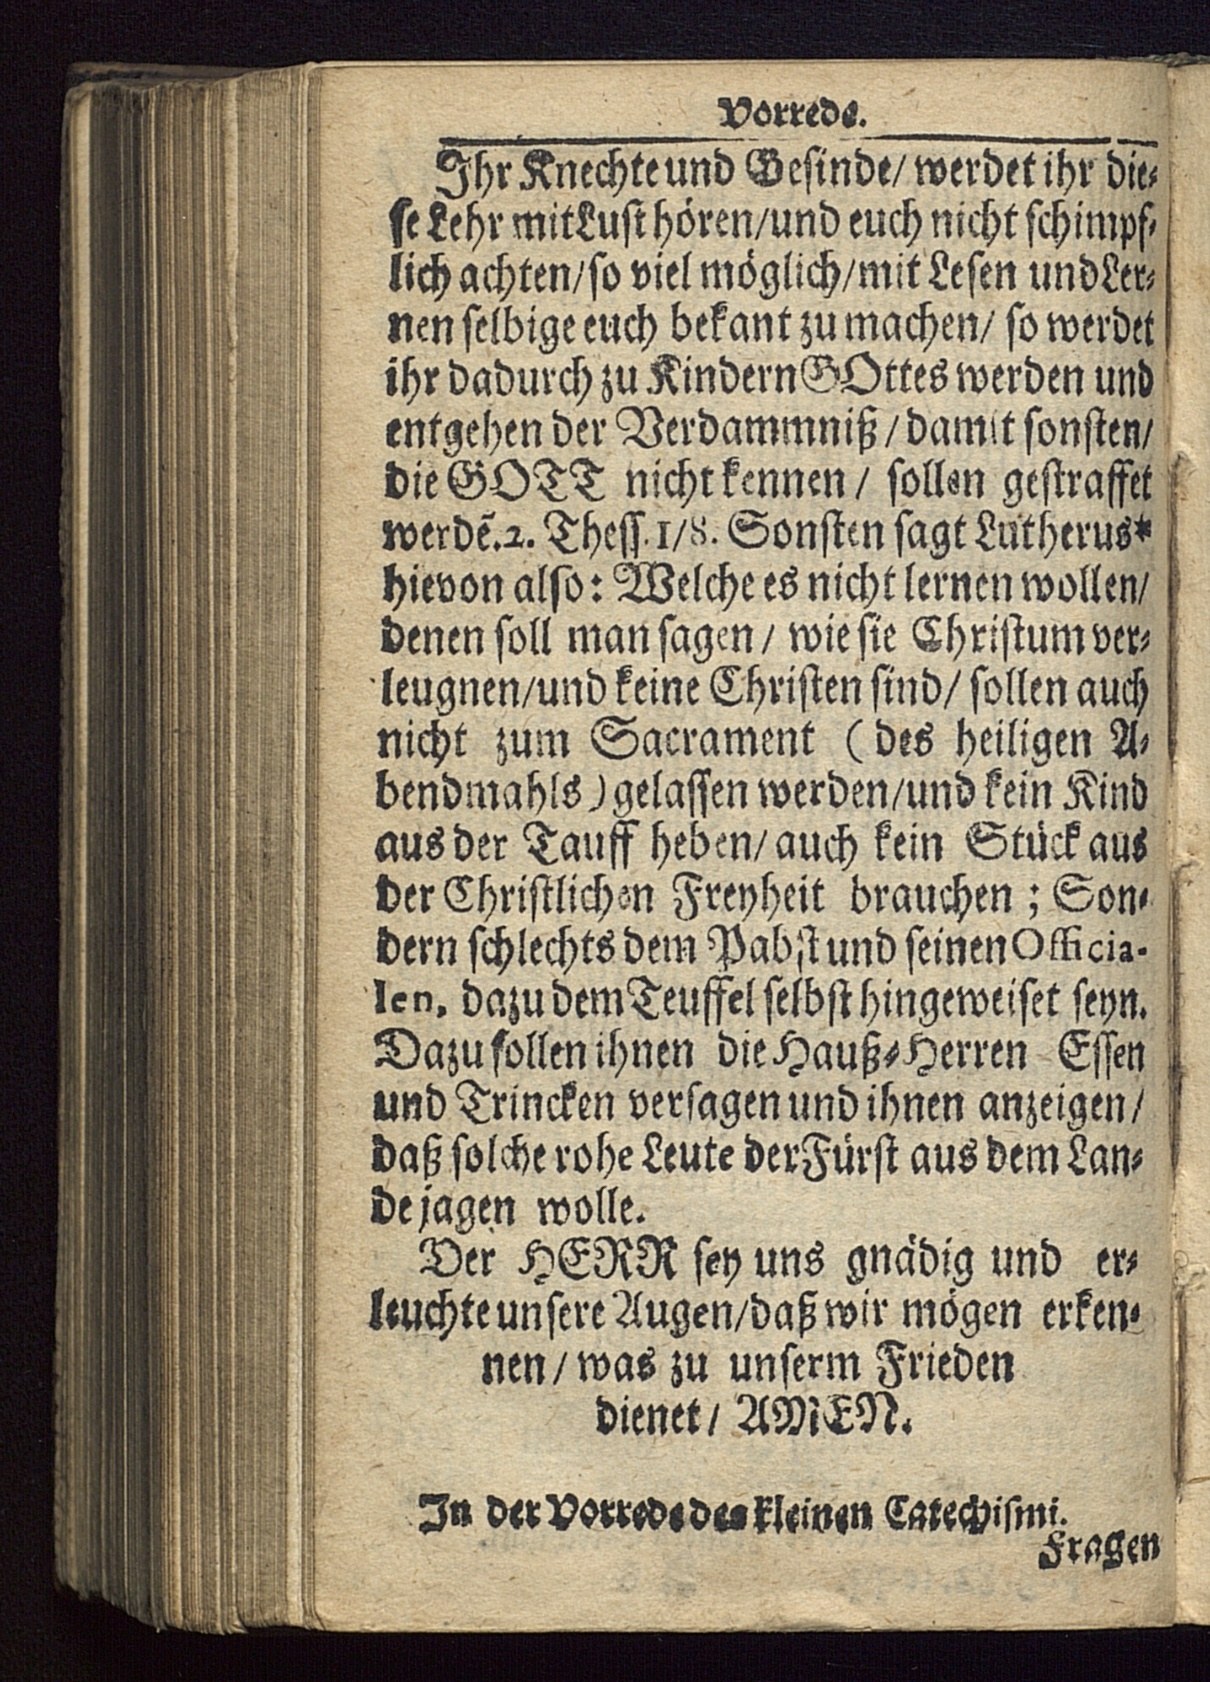 Vorrede.
Ihr Knechte und Gesinde/ werdet ihr die-
se Lehr mit Lust hören/und euch nicht schimpf-
lich achten/so viel möglich/mit Lesen und Ler-
nen selbige euch bekant zu machen/ so werdet
ihr dadurch zu Kindern GOttes werden und
entgehen der Verdammniß/ damit sonsten/
die GOTT nicht kennen/ sollen gestraffet
werdẽ.2. Thess.1/8. Sonsten sagt Lutherus*
hievon also: Welche es nicht lernen wollen/
denen soll man sagen/ wie sie Christum ver-
leugnen/und keine Christen sind/ sollen auch
nicht zum Sacrament (des heiligen A-
bendmahls) gelassen werden/und kein Kind
aus der Tauff heben/ auch kein Stück aus
der Christlichen Freyheit brauchen; Son-
dern schlechts dem Pabst und seinen Officia-
len, dazu dem Teuffel selbst hingeweiset seyn.
Dazu sollen ihnen die Hauß-Herren Essen
und Trincken versagen und ihnen anzeigen/
daß solche rohe Leute der Fürst aus dem Lan-
de jagen wolle.
Der HERR sey uns gnädig und er-
leuchte unsere Augen/daß wir mögen erken-
nen/ was zu unserm Frieden
dienet/ AMEN.
In der Vorrede des kleinen Catechismi.
Fragen